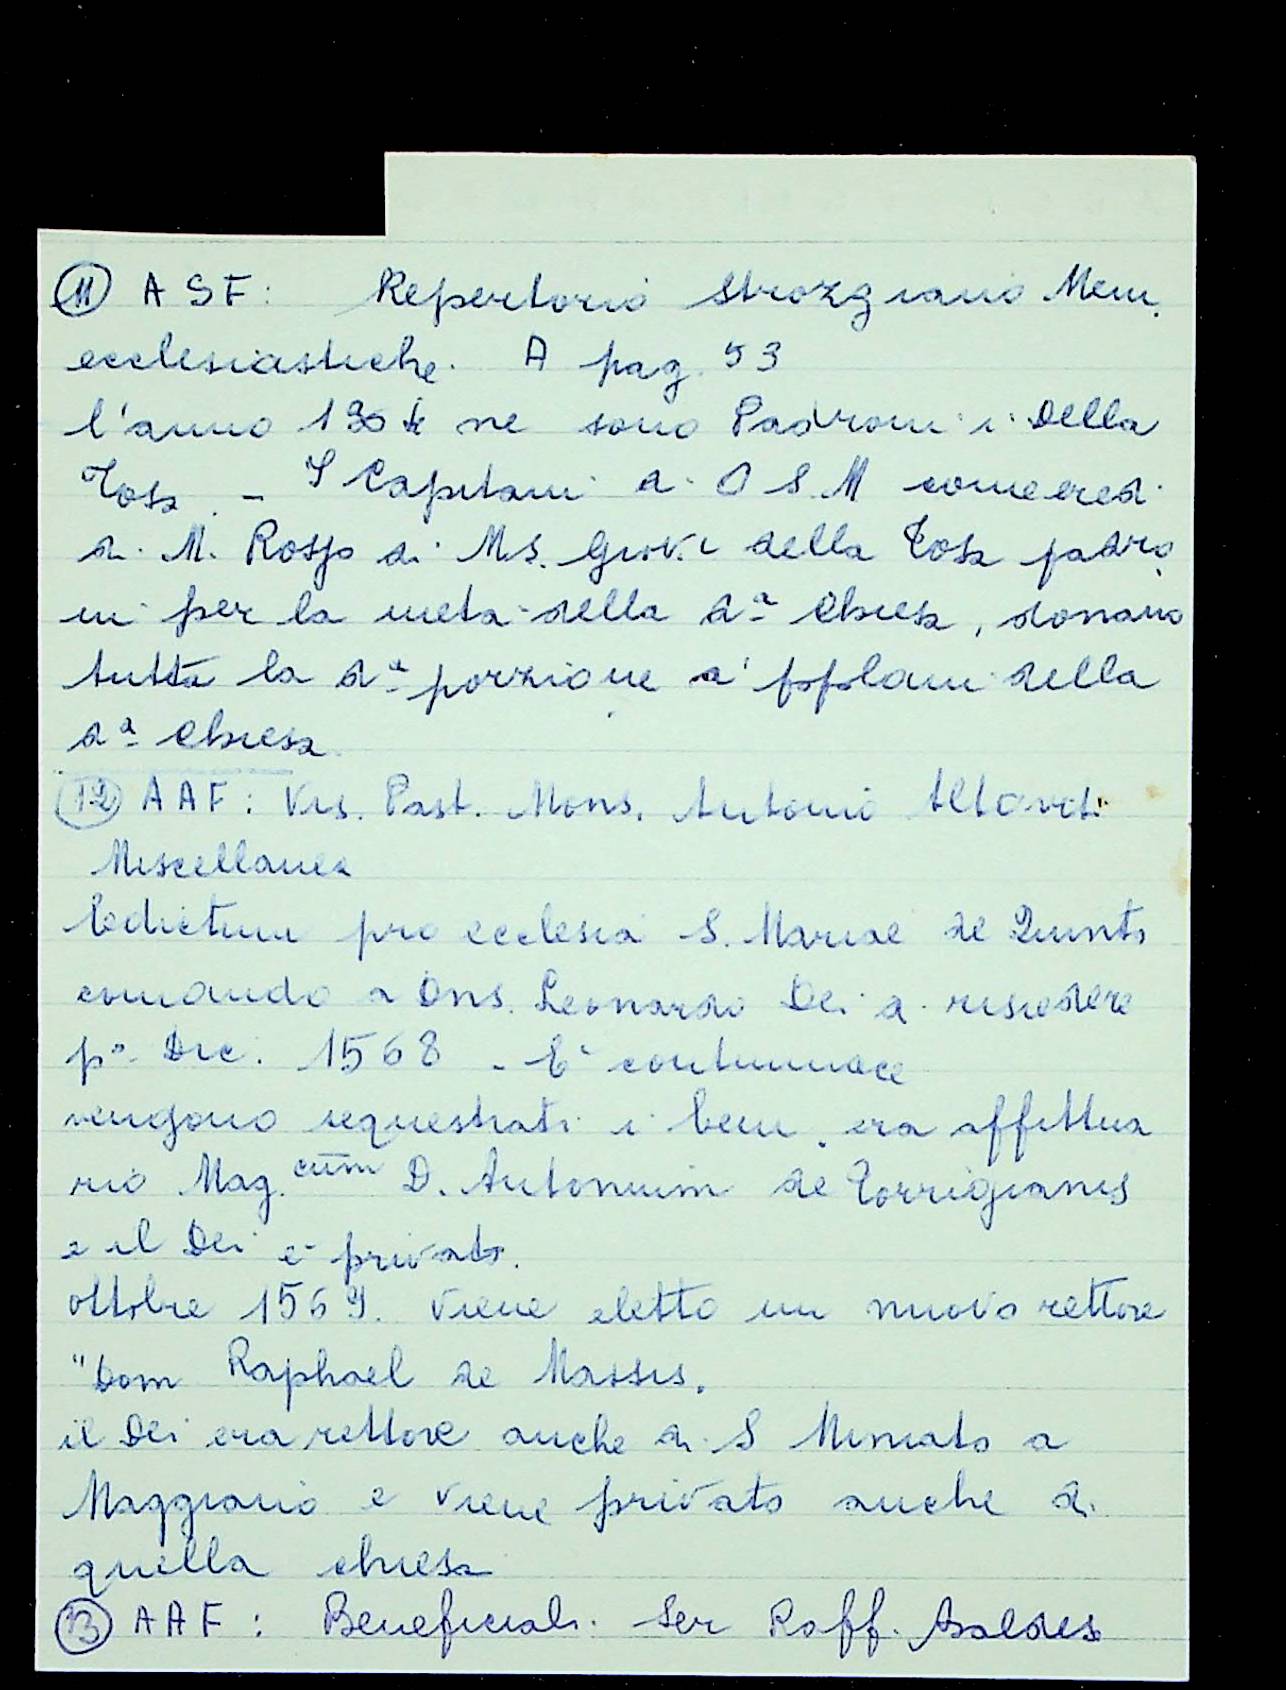 (11) ASF: Repertorio Strozziano Mem.
ecclesiastiche. A pag. 53
l'anno ne sono Padroni i Della
Tosa. - I Capitani di O S. M come eredi
di M. Rosso di Ms. Giov.i della Tosa padro
ni per la metà della dª Chiesa, donano
tutta la dª porzione a' popolani della
dª Chiesa
(12) AAF: Vis. Past. Mons. Antonio Altoviti
Miscellanea
Edictum pro ecclesia S. Mariae de Quinto
comando a Dns. Leonardo Dei a risiedere
pº Dic. 1568 - E' contumace
vengono sequestrati i beni. era affittua
rio Mag.cum D. Antonium de Torrigianis
e il Dei è privato.
ottobre 1569. viene eletto un nuovo rettore
"Dom Raphael de Massis.
il Dei era rettore anche di S Miniato a
Maggiano e viene privato anche di
quella chiesa
(13) AAF: Beneficiali. Ser Raff.